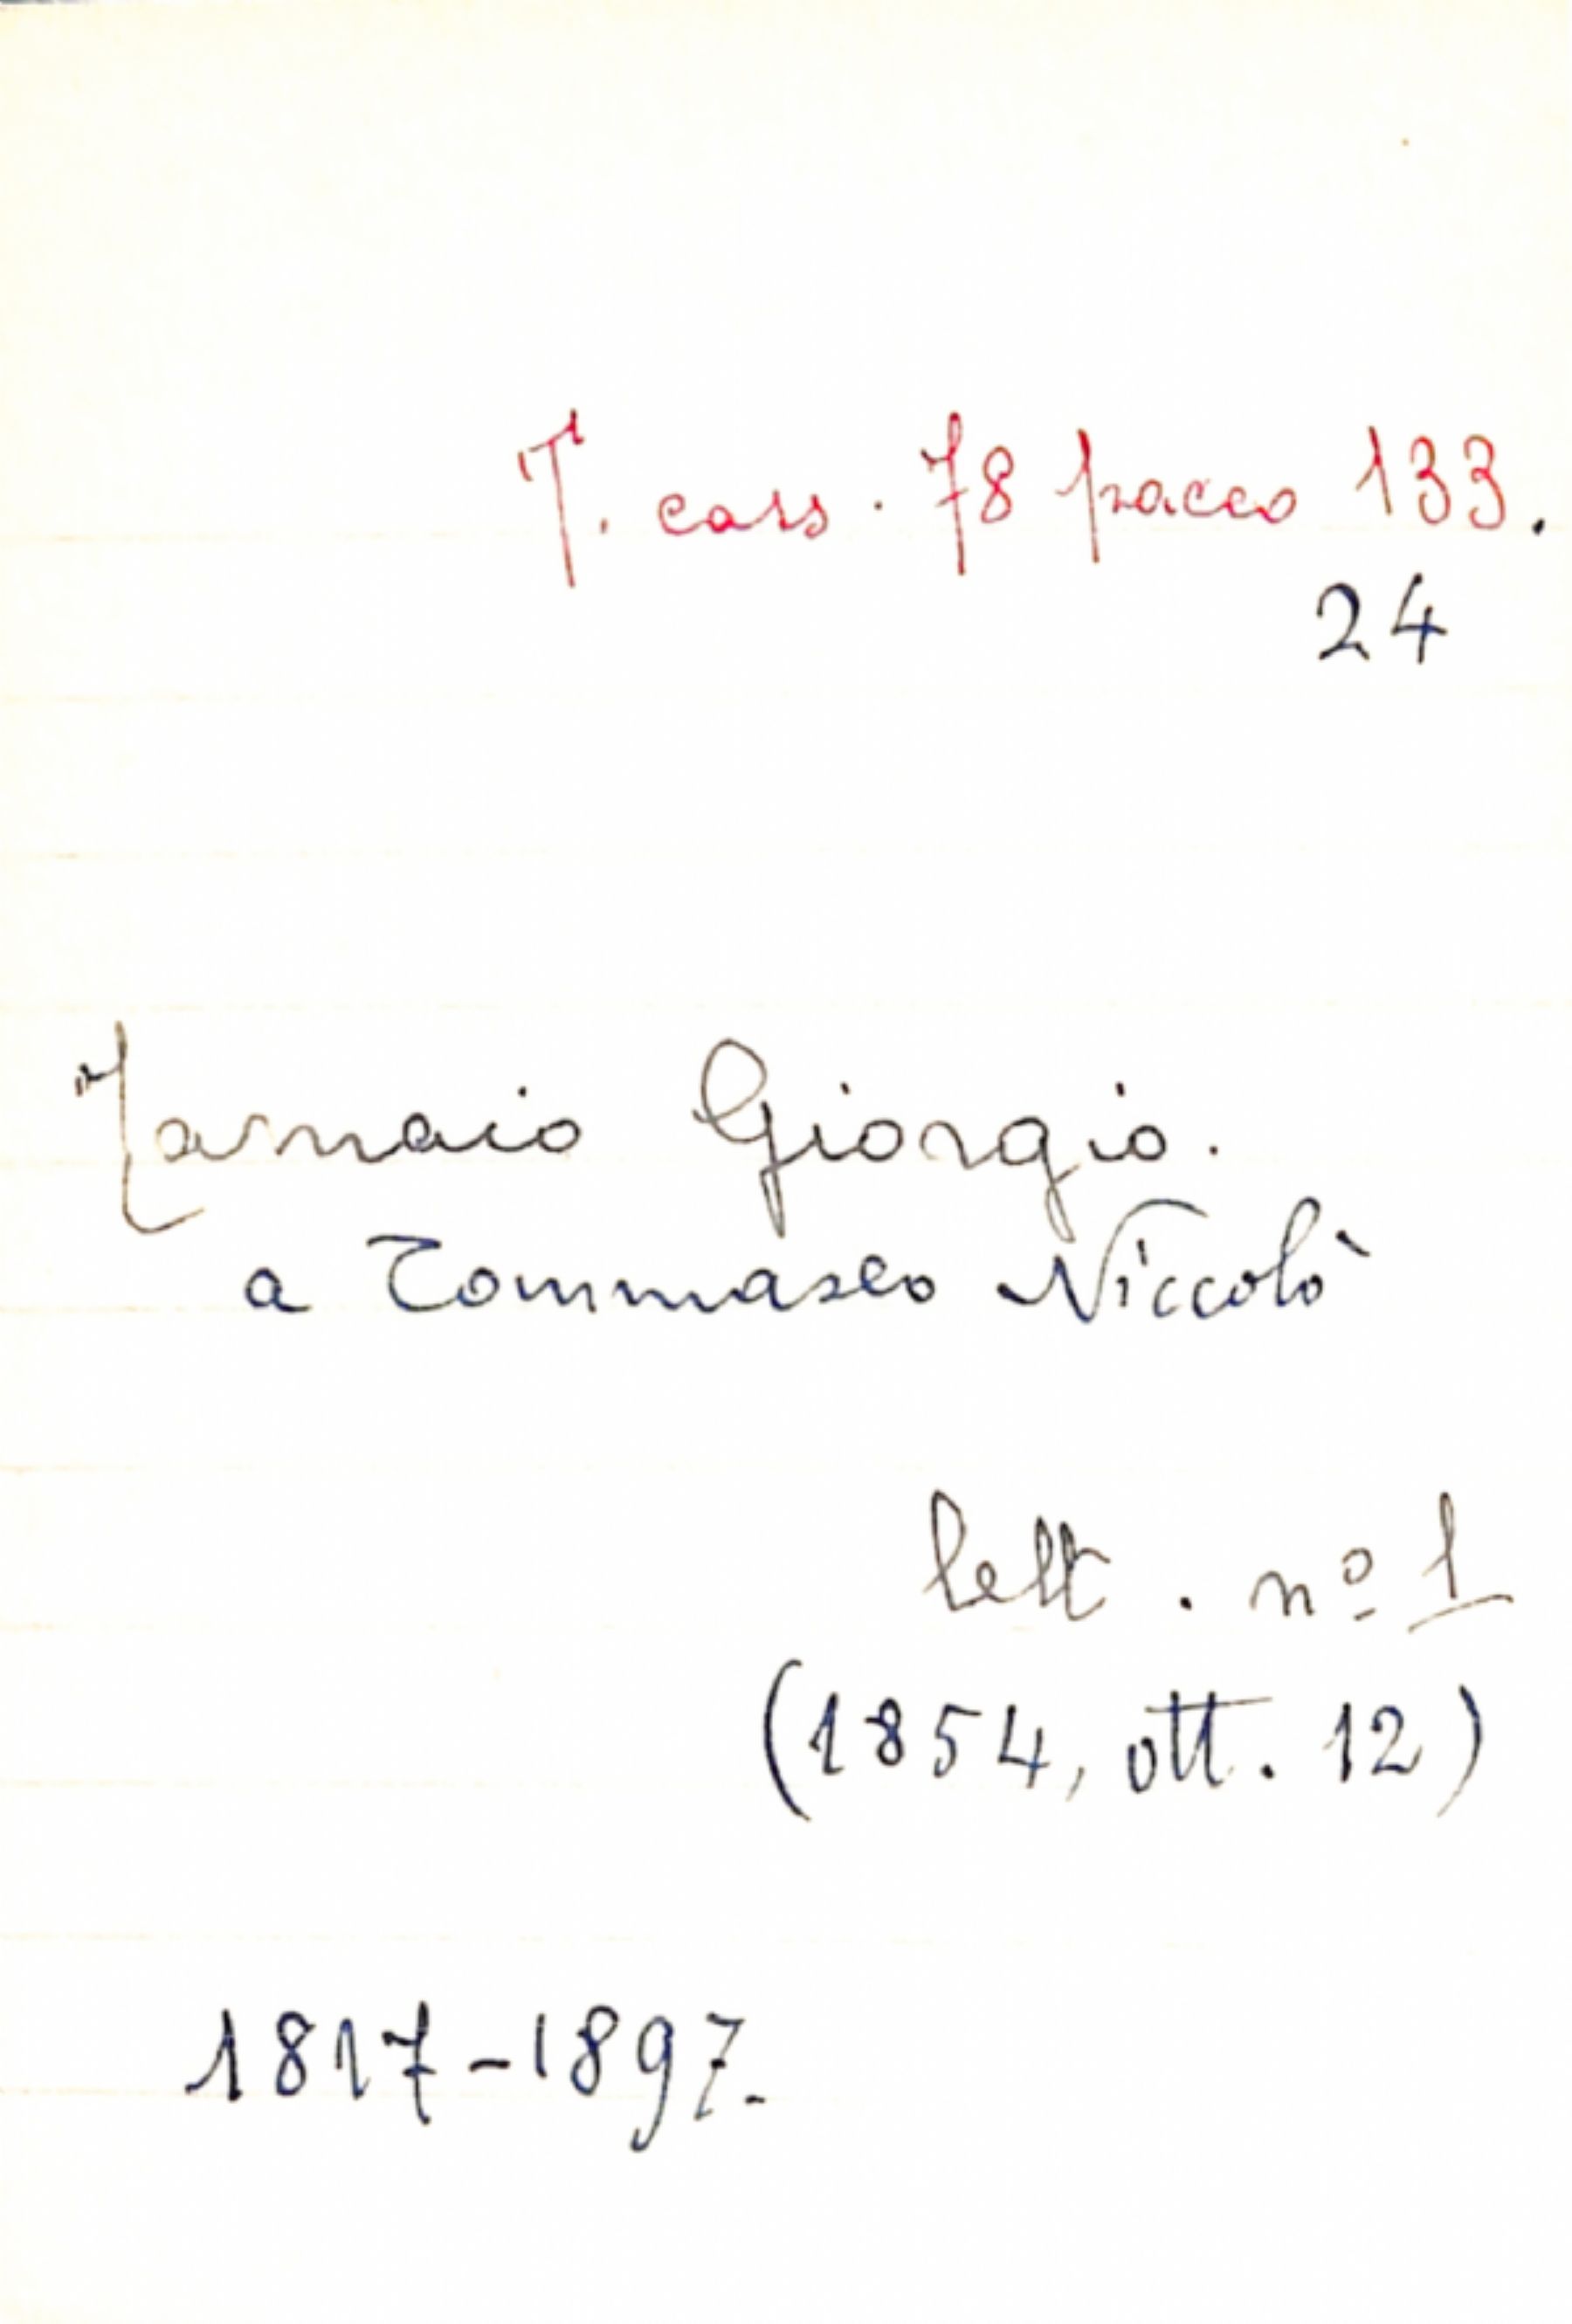 T. cass. 78 pacco 133.
24
Giorgio.
a Tommaseo Niccolò
lett. nº 1
(1854, ott. 12)
1817-1897.